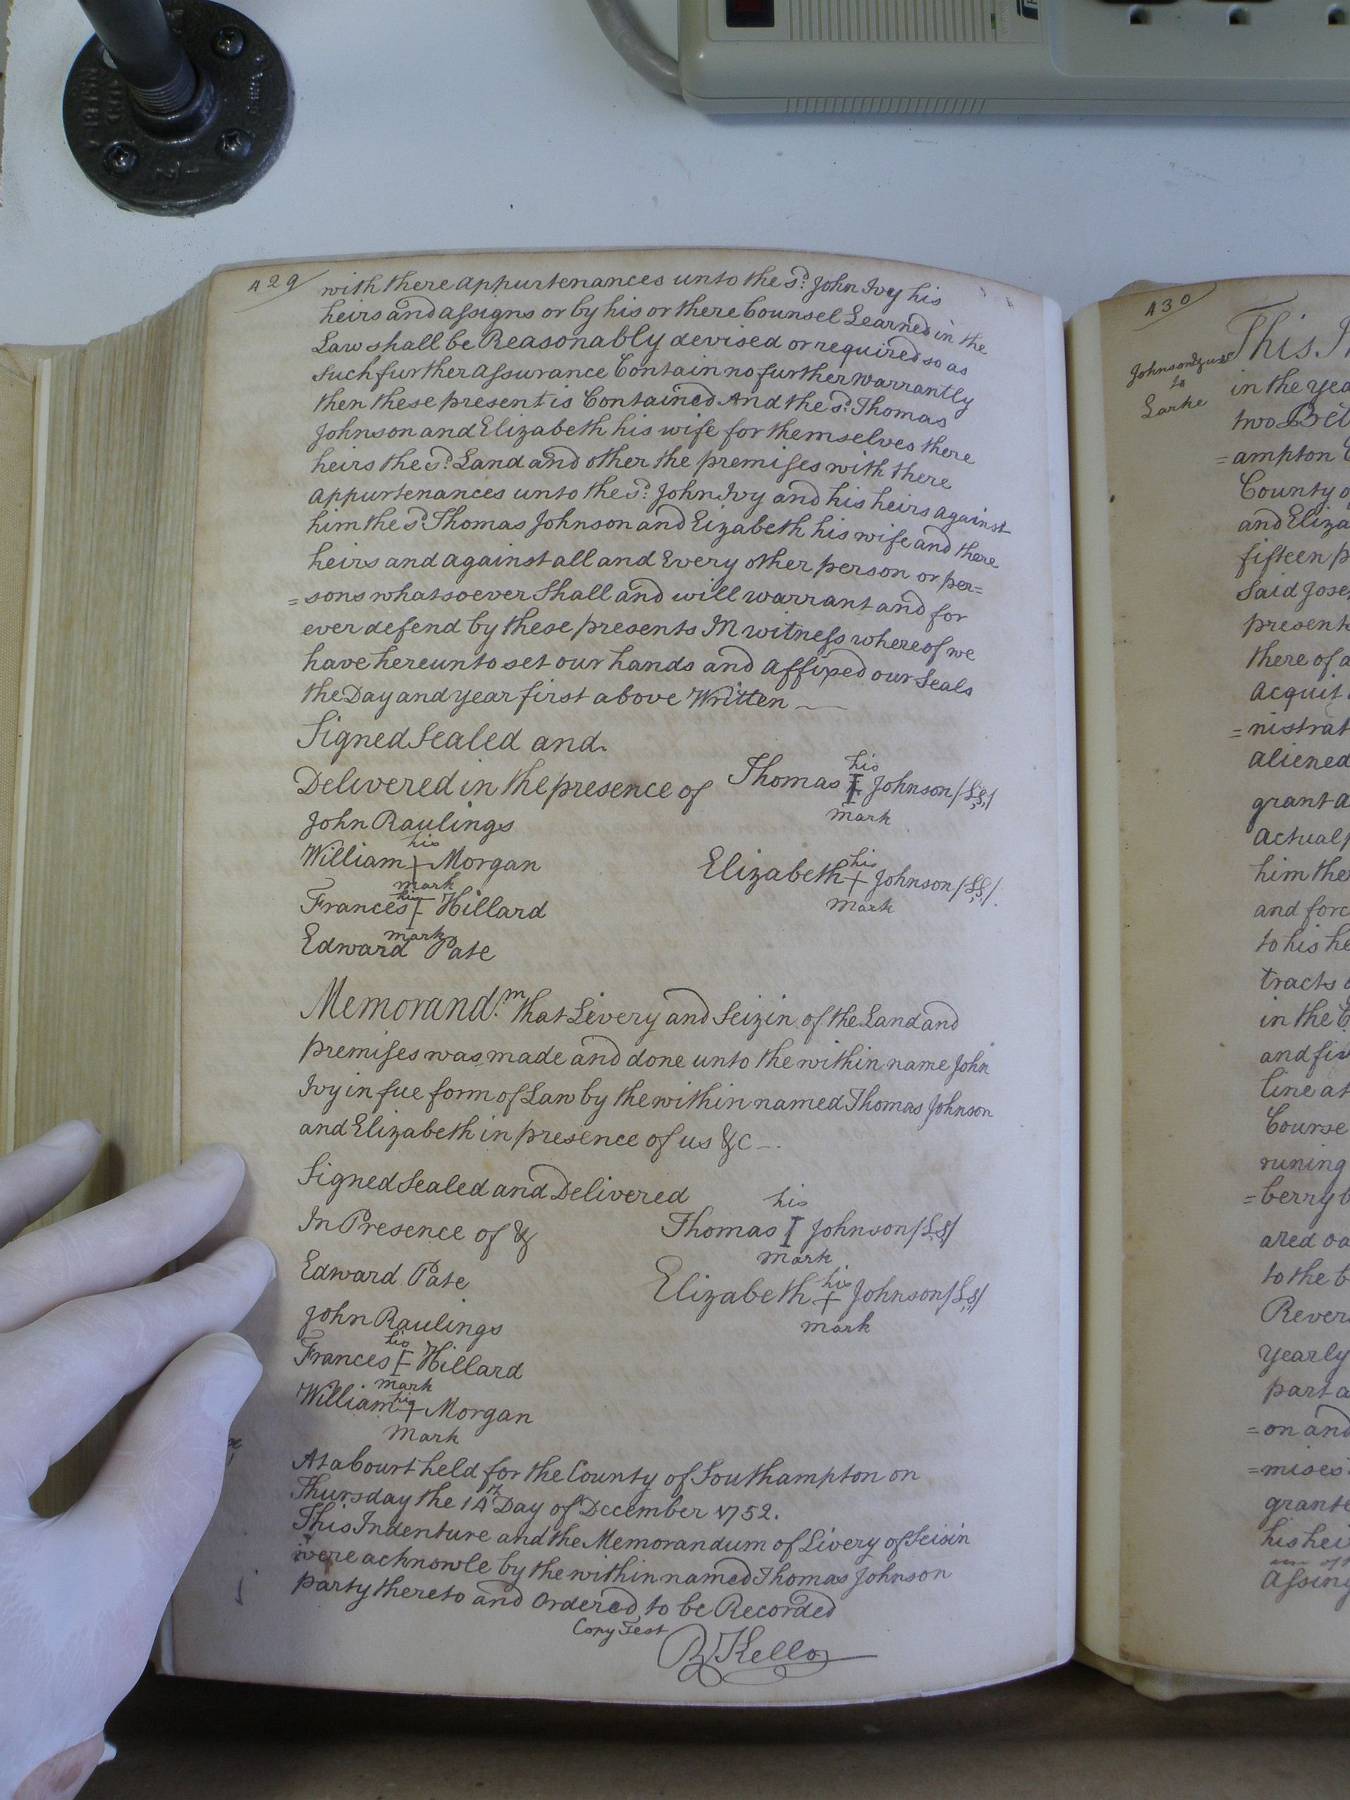 429
with there appurtenances unto the sd. John Ivy his
heirs and assigns or by his or there Counsel Learned in the
Law shall be Reasonably devised or required so as
such further assurance Contain no further warrantly
then these present is Contained And the sd. Thomas
Johnson and Elizabeth his wife for themselves there
heirs the sd. Land and other the premises with there
appurtenances unto the sd. John Ivy and his heirs against
him the sd. Thomas Johnson and Elizabeth his wife and there
heirs and against all and Every other person or per=
=sons whatsoever Shall and will warrant and for
ever defend by these presents In witness whereof we
have hereunto set our hands and affixed our Seals
the Day and year first above Written
Signed Sealed and
Delivered in the presence of
his
Thomas I Johnson /LS/
mark
John Raulings
his
William + Morgan
mark
his
Elizabeth + Johnson /LS/.
mark
his
Frances F Hillard
mark
Edward Pate
Memorandm. that Livery and Seizin of the Land and
premises was made and done unto the within name John
Ivy in fue form of Law by the within named Thomas Johnson
and Elizabeth in presence of us &c
Signed Sealed and Delivered
In Presence of &
his
Thomas I Johnson /LS/
mark
Edward Pate
his
Elizabeth + Johnson /LS/
mark
John Raulings
his
Frances F Hillard
mark
his
William + Morgan
mark
At a Court held for the County of Southampton on
Thursday the 14th Day of December 1752.
This Indenture and the Memorandum of Livery of Seisin
were acknowle by the within named Thomas Johnson
party thereto and Ordered to be Recorded
Copy Test
R Kello
430
Johnson
to
Larke
This
in the yea
two Bet
=ampton
County o
and Eliza
fifteen p
Said Jose
present
there of a
acquit
=nistrat
aliened
grant a
actual
him the
and forc
to his he
tracts
in the C
and fiv
line at
Course
runing
=berry b
a red oa
to the b
Rever
yearly
part a
=on and
=mises
grante
his hei
Assing